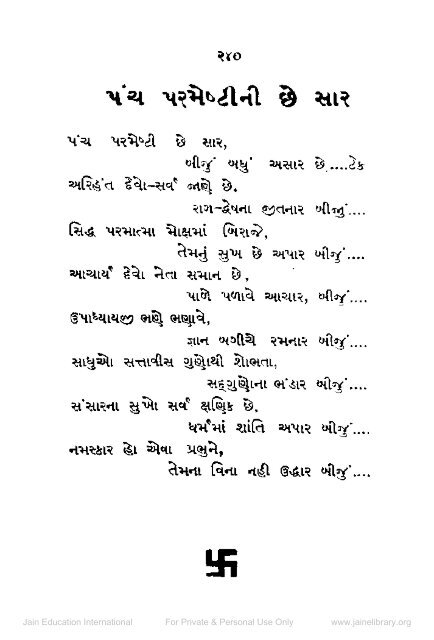 ૨૪૦
પંચ પરમેષ્ટીની છે સાર
પંચ પરમેષ્ટી છે સાર,
બીજું બધું અસાર છે....ટેક
અરિહંત દેવો-સર્વ જાણે છે.
રાગ-દ્વેષના જીતનાર બીજું....
સિદ્ધ પરમાત્મા મોક્ષમાં બિરાજે,
તેમનું સુખ છે અપાર બીજું....
આચાર્ય દેવો નેતા સમાન છે,
પાળે પળાવે આચાર, બીજું....
ઉપાધ્યાયજી ભણે ભણાવે,
જ્ઞાન બગીચે રમનાર બીજું....
સાધુઓ સત્તાવીસ ગુણોથી શોભતા,
સદ્દગુણોના ભંડાર બીજું....
સંસારના સુખો સર્વ ક્ષણિક છે.
ધર્મમાં શાંતિ અપાર બીજું....
નમસ્કાર હો એવા પ્રભુને,
તેમના વિના નહી ઉદ્ધાર બીજું....
Jain Education International For Private & Personal Use Only www.jainelibrary.org